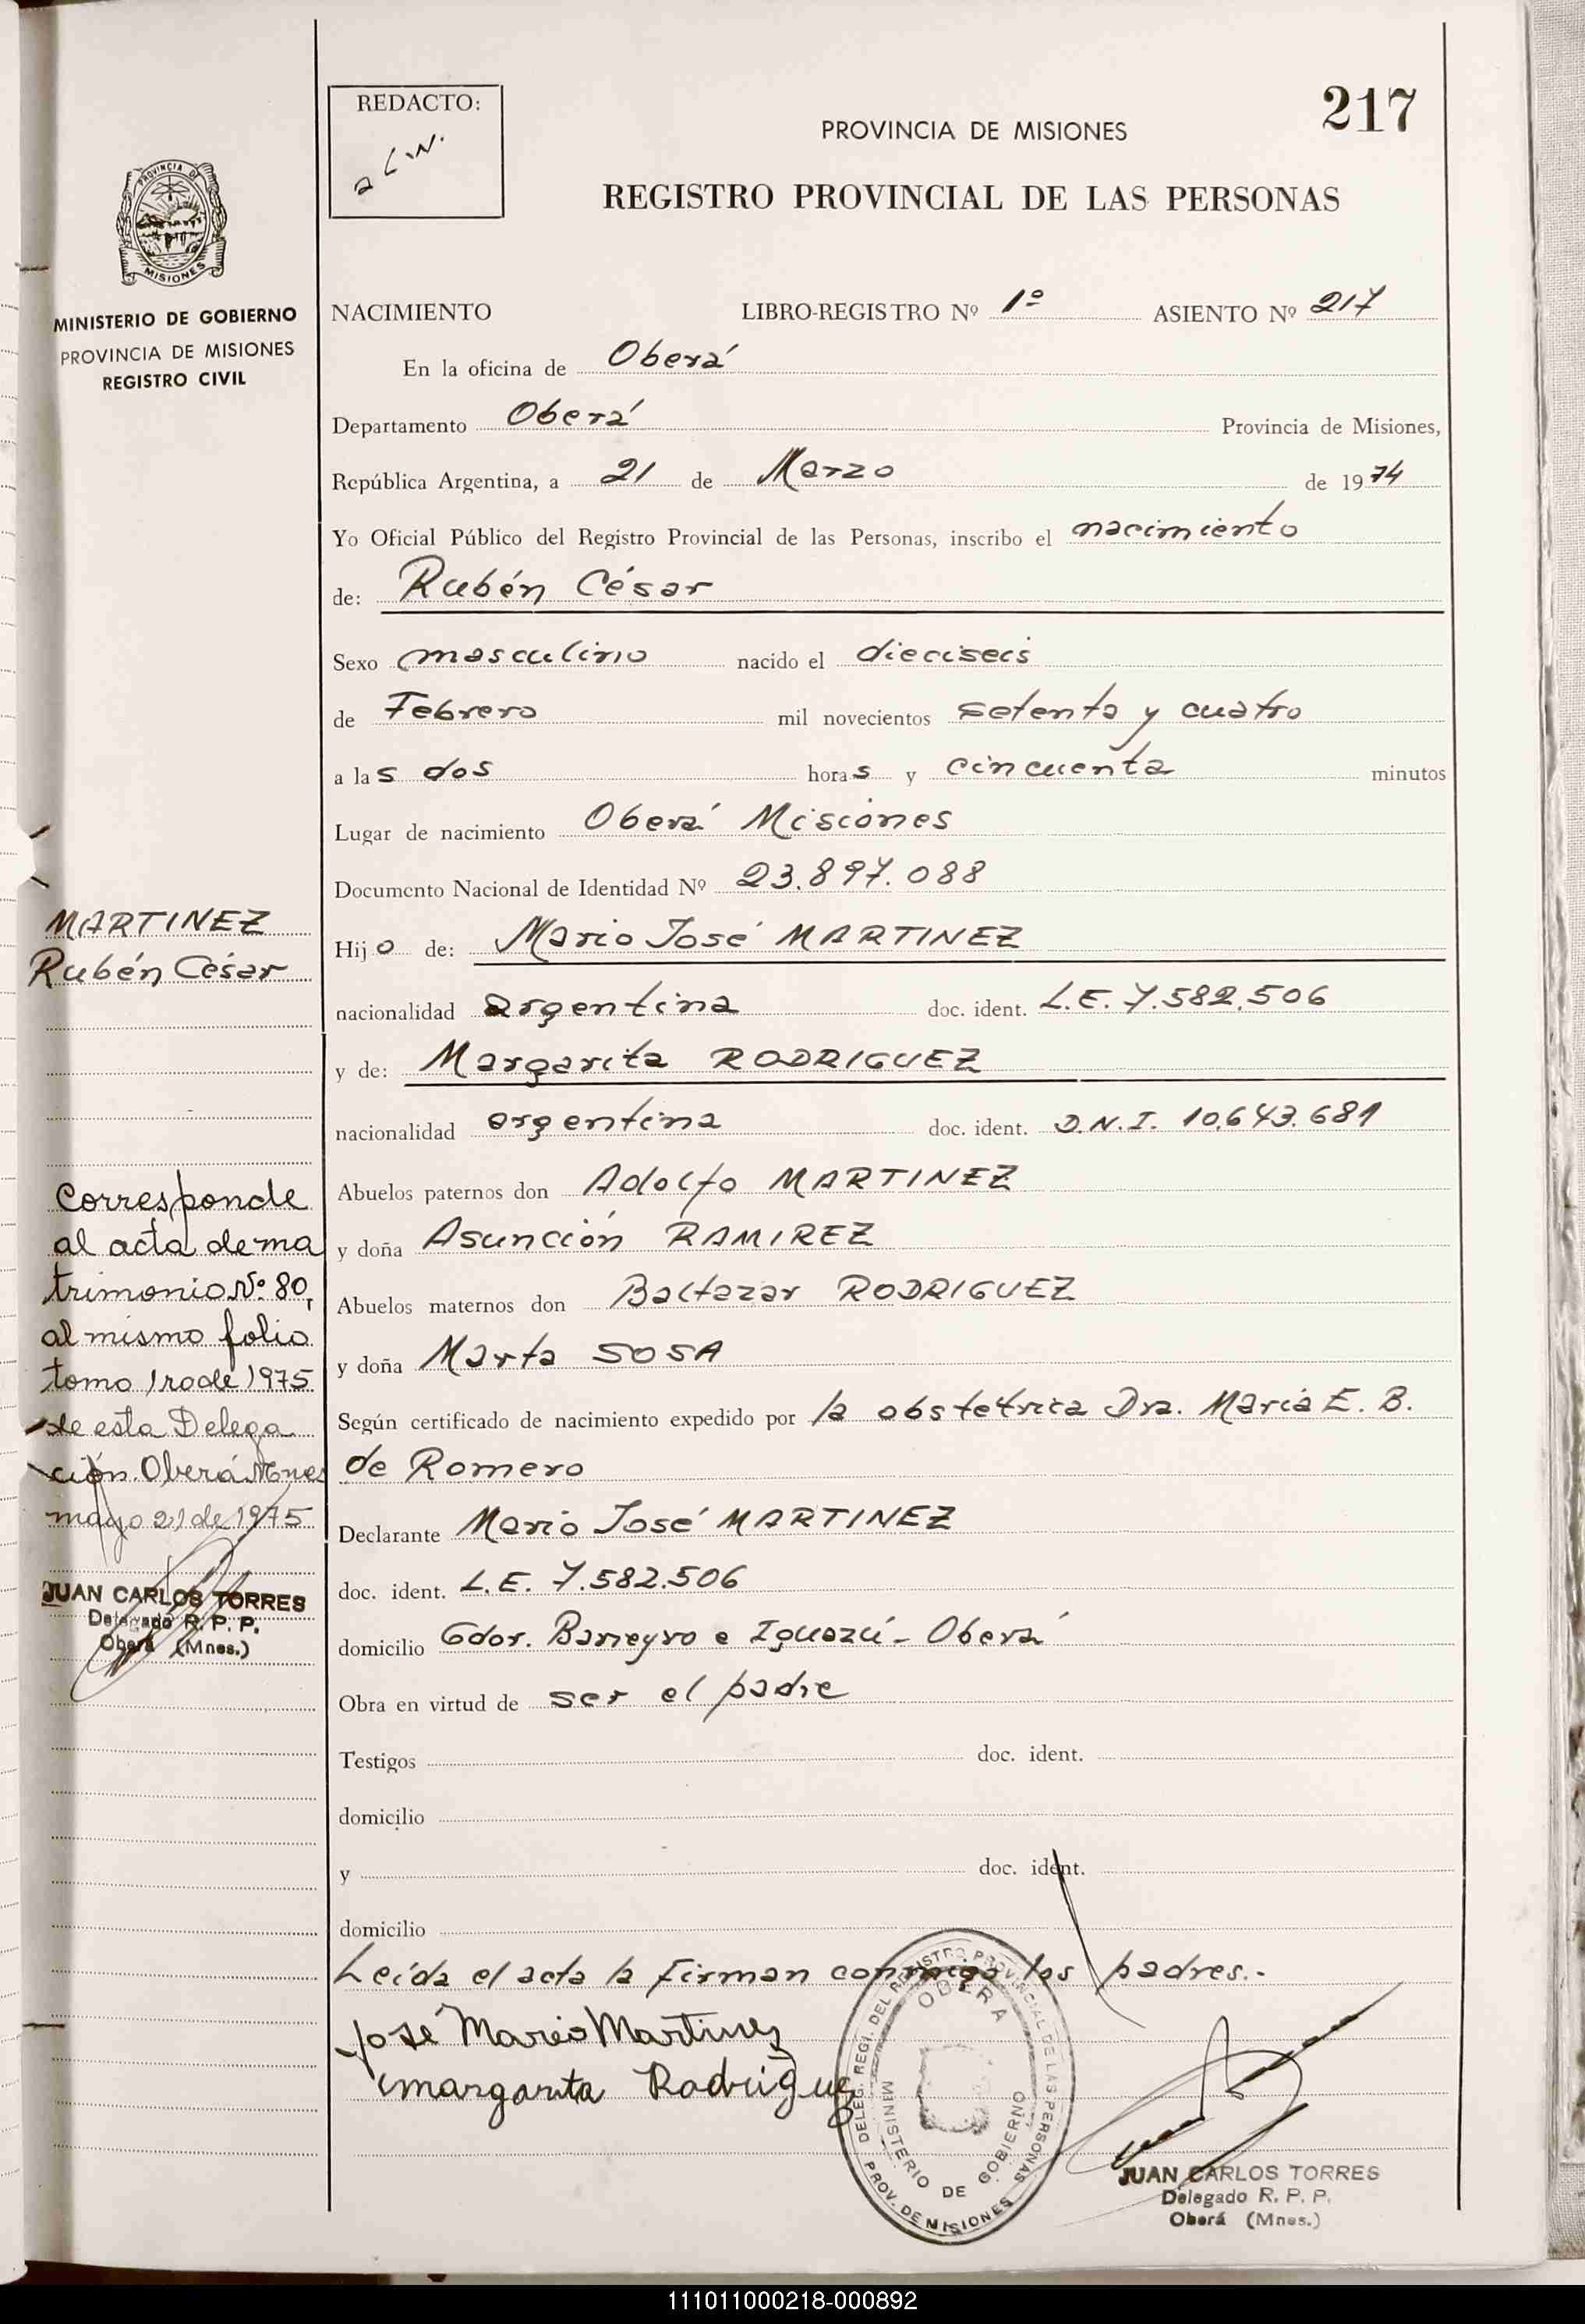 REDACTO:
217
PROVINCIA DE MISIONES
REGISTRO PROVINCIAL DE LAS PERSONAS
PROVINCIA DE
MISIONES
MINISTERIO DE GOBIERNO
PROVINCIA DE MISIONES
REGISTRO CIVIL
NACIMIENTO LIBRO-REGISTRO Nº 1º ASIENTO Nº 217
En la oficina de Oberá
Departamento Oberá Provincia de Misiones,
República Argentina, a 21 de Marzo de 1974
Yo Oficial Público del Registro Provincial de las Personas, inscribo el nacimiento
de: Rubén César
Sexo masculino nacido el dieciseis
de Febrero mil novecientos setenta y cuatro
a las dos horas y cincuenta minutos
Lugar de nacimiento Oberá Misiones
Documento Nacional de Identidad Nº 23.897.088
MARTINEZ
Rubén César
Hijo de: Mario José MARTINEZ
nacionalidad argentina doc. ident. L.E. 7.582.506
y de: Margarita RODRIGUEZ
nacionalidad argentina doc. ident. D.N.I. 10.643.681
Abuelos paternos don Adolfo MARTINEZ
y doña Asunción RAMIREZ
Abuelos maternos don Baltazar RODRIGUEZ
y doña Marta SOSA
Según certificado de nacimiento expedido por la obstetrica Dra. Maria E. B.
de Romero
Declarante Mario José MARTINEZ
doc. ident. L.E. 7.582.506
domicilio Gdor. Barreyro e Iguazú - Oberá
Obra en virtud de ser el padre
Testigos doc. ident.
domicilio
y doc. ident.
domicilio
Leída el acta la firman conmigo los padres.-
José Mario Martinez
margarita Rodriguez
Corresponde
al acta de ma
trimonio Nº 80,
al mismo folio
tomo 1ro de 1975
de esta Delega
ción Oberá Mnes
mayo 21 de 1975
JUAN CARLOS TORRES
Delegado R. P. P.
Oberá (Mnes.)
DELEG. REGI. DEL REGISTRO PROVINCIAL DE LAS PERSONAS
OBERA
MINISTERIO DE GOBIERNO
PROV. DE MISIONES
JUAN CARLOS TORRES
Delegado R. P. P.
Oberá (Mnes.)
111011000218-000892